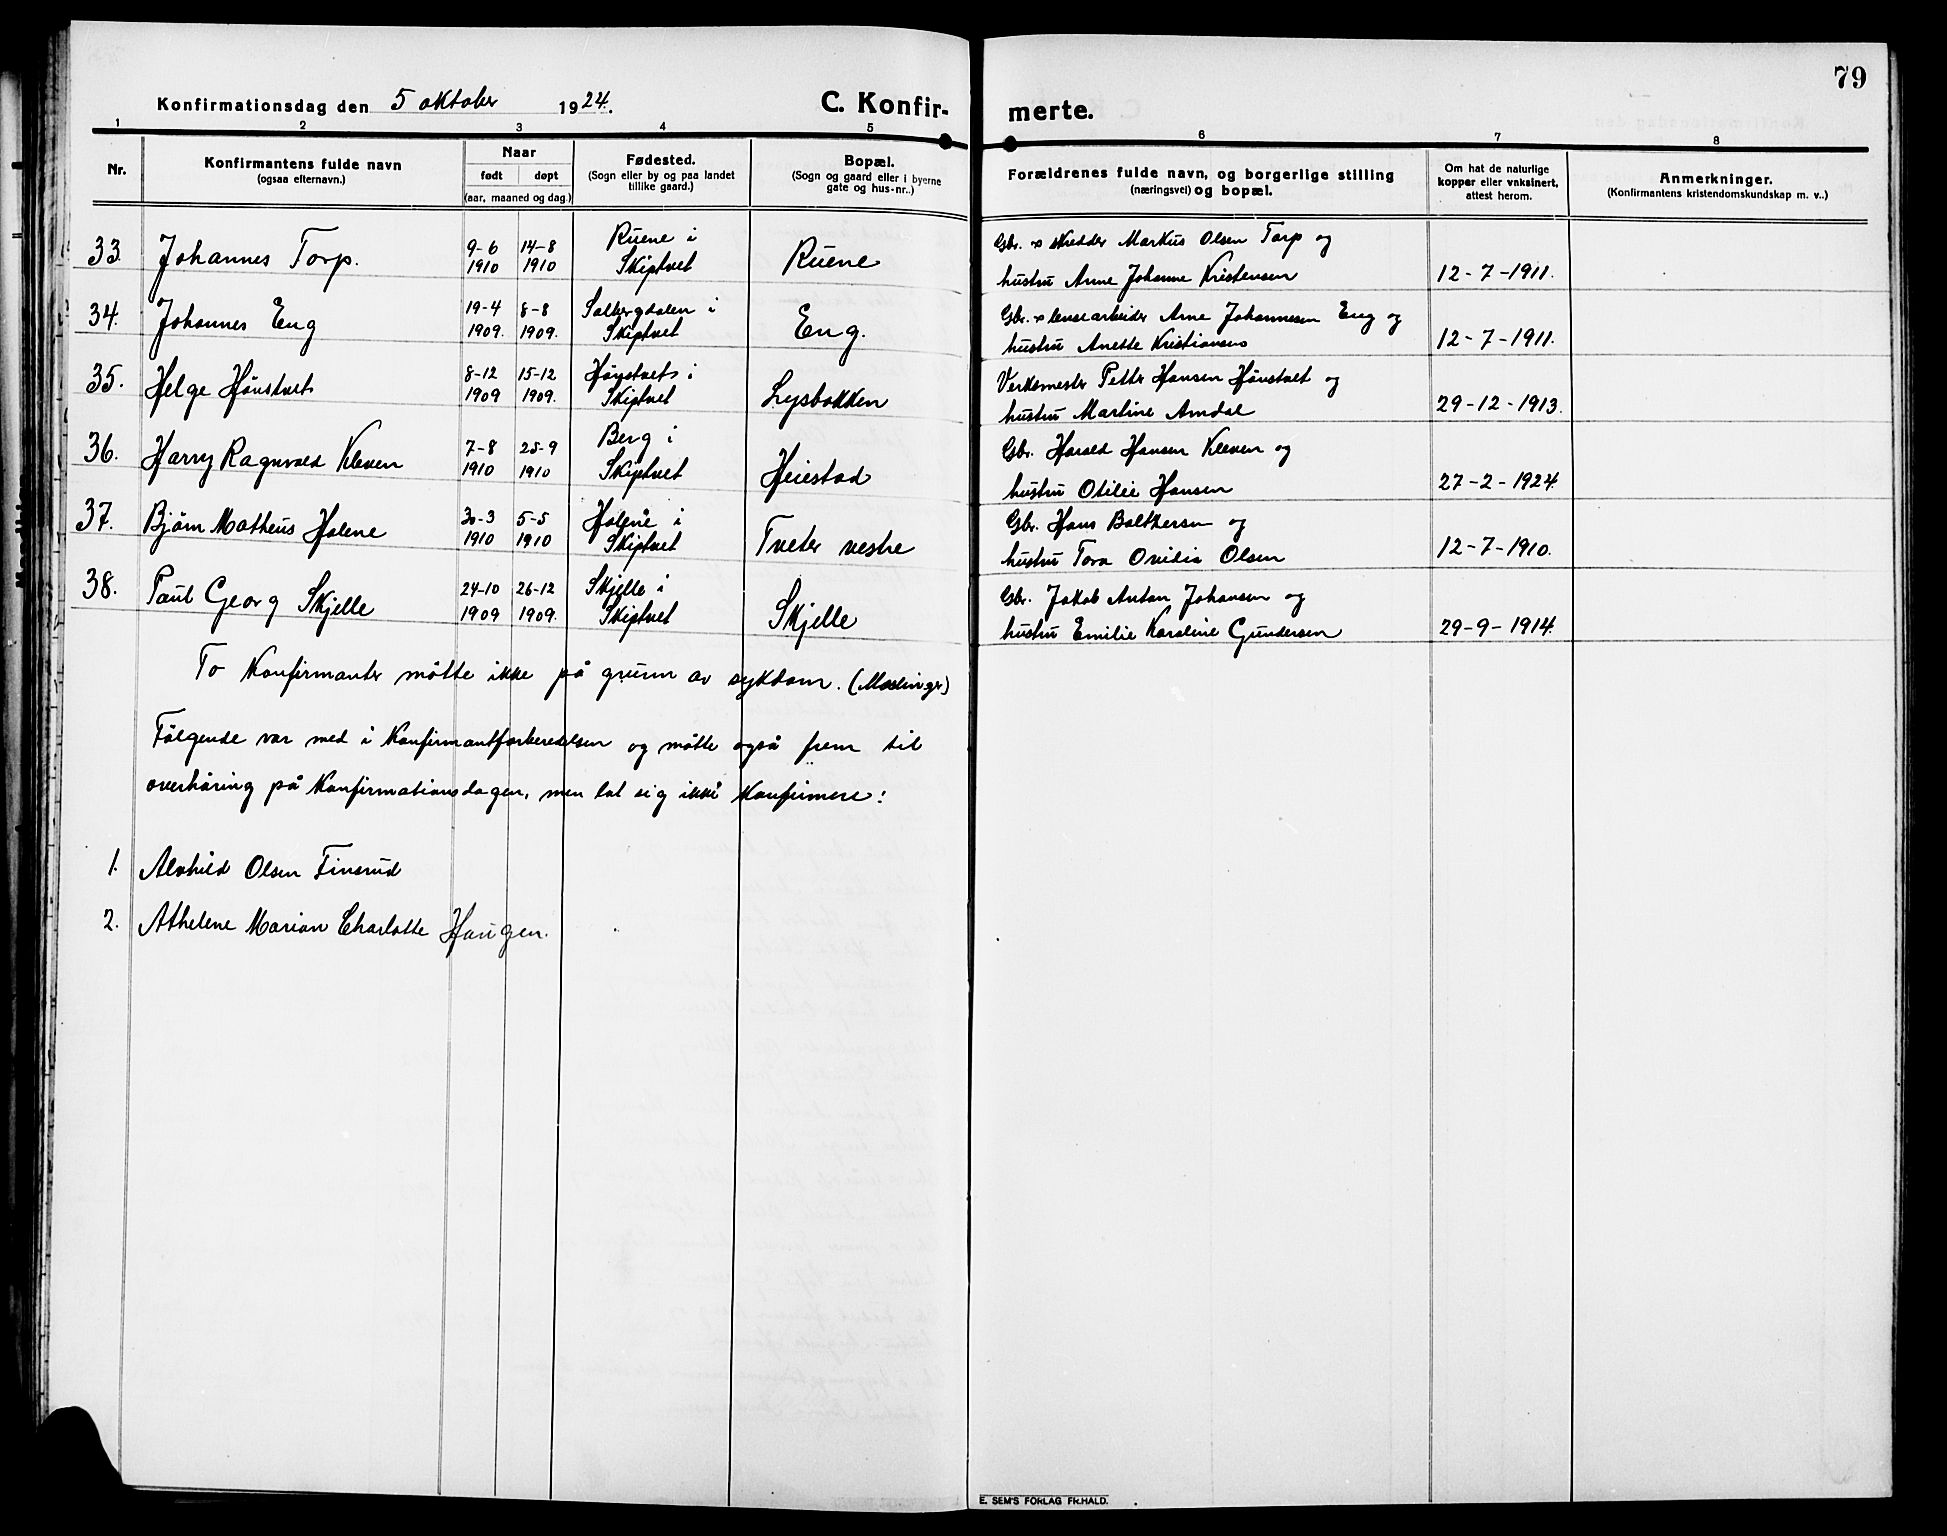 79
Konfirmationsdag den 5 oktober 1924.
C. Konfir- merte.
1 2 3 4 5 6 7 8
Nr.
Konfirmantens fulde navn
(ogsaa efternavn.)
Naar
født døpt
(aar, maaned og dag.)
Fødested.
(Sogn eller by og paa landet
tillike gaard.)
Bopæl.
(Sogn og gaard eller i byerne
gate og hus-nr..)
Forældrenes fulde navn, og borgerlige stilling
(næringsvei) og bopæl.
Om hat de naturlige
kopper eller vaksinert,
attest herom.
Anmerkninger.
(Konfirmantens kristendomskundskap m. v..)
33. Johannes Torp. 9-6 1910 14-8 1910 Ruene i Skiptvet Ruene Gbr. & skredder Markus Olsen Torp og
hustru Anne Johanne Kristensen 12-7-1911.
34. Johannes Eng 19-4 1909. 8-8 1909. Solbergdalen i Skiptvet Eng. Gbr. & Arne Johannessen Eng og
hustru Anette 12-7-1911.
35. Helge Hönstvet 8-12 1909 15-12 1909. i Skiptvet Lysbakken Verksmester Petter Hansen Hönstvet og
hustru Martine Amdal 29-12-1913.
36. Harry Ragnvald Kleven 7-8 1910 25-9 1910 Berg i Skiptvet Heiestad Gbr. Harald Hansen Kleven og
hustru Otilie Hansen 27-2-1924.
37. Björn Matheus Holene 30-3 1910 5-5 1910 Holene i Skiptvet Tveter vestre Gbr. Hans Baltzersen og
hustru Tora Ovidia Olsen 12-7-1910.
38. Paul Georg Skjelle 24-10 1909 26-12 1909. Skjelle i Skiptvet Skjelle Gbr. Jakob Anton Johansen og
hustru Emilie Karoline Gundersen 29-9-1914.
To konfirmanter mötte ikke på grunn av sykdom. (Meslinger)
Fölgende var med i konfirmantforberedelsen og mötte også frem til
overhöring på konfirmationsdagen, men lot sig ikke konfirmere:
1. Alvhild Olsen Finsrud
2. Athelene Marion Charlotte Haugen.
E. SEM'S FORLAG FR.HALD.